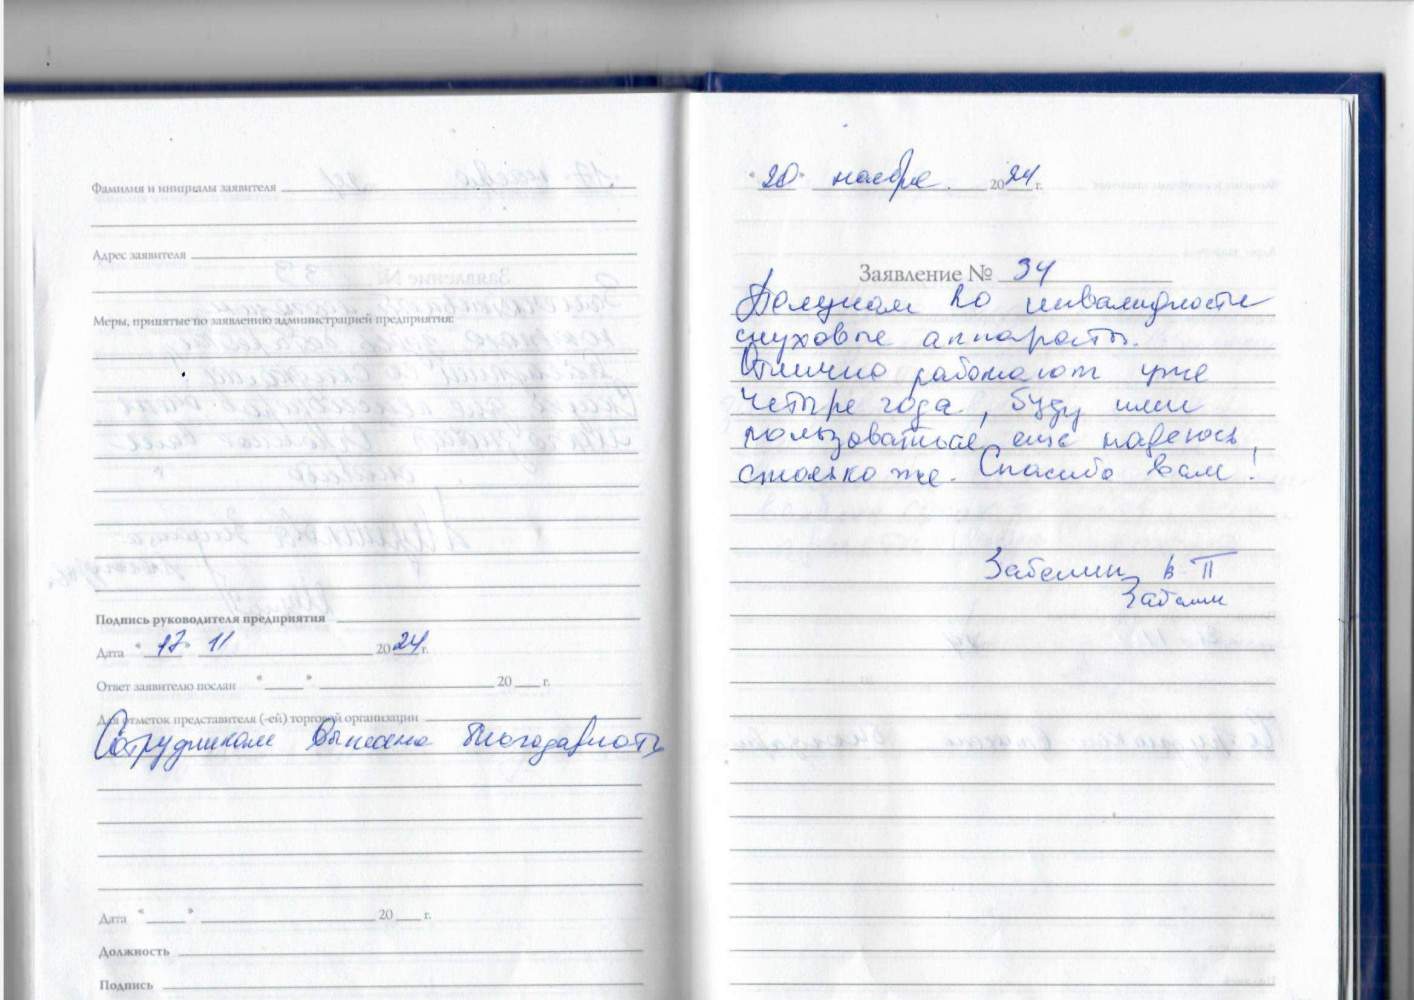 Фамилия и инициалы заявителя
Адрес заявителя
Меры, принятые по заявлению администрацией предприятия:
Подпись руководителя предприятия
Дата "17" 11 2024г.
Ответ заявителю послан " " 20 г.
Для отметок представителя (-ей) торговой организации
Сотрудникам вынесена благодарность
Дата " " 20 г.
Должность
Подпись
"20" ноября 2024г.
Заявление № 34
Получаем по инвалидности
слуховые аппараты.
Отлично работают уже
четыре года, буду ими
пользоваться еще надеюсь
столько же. Спасибо вам!
Забелин В П
Забелин